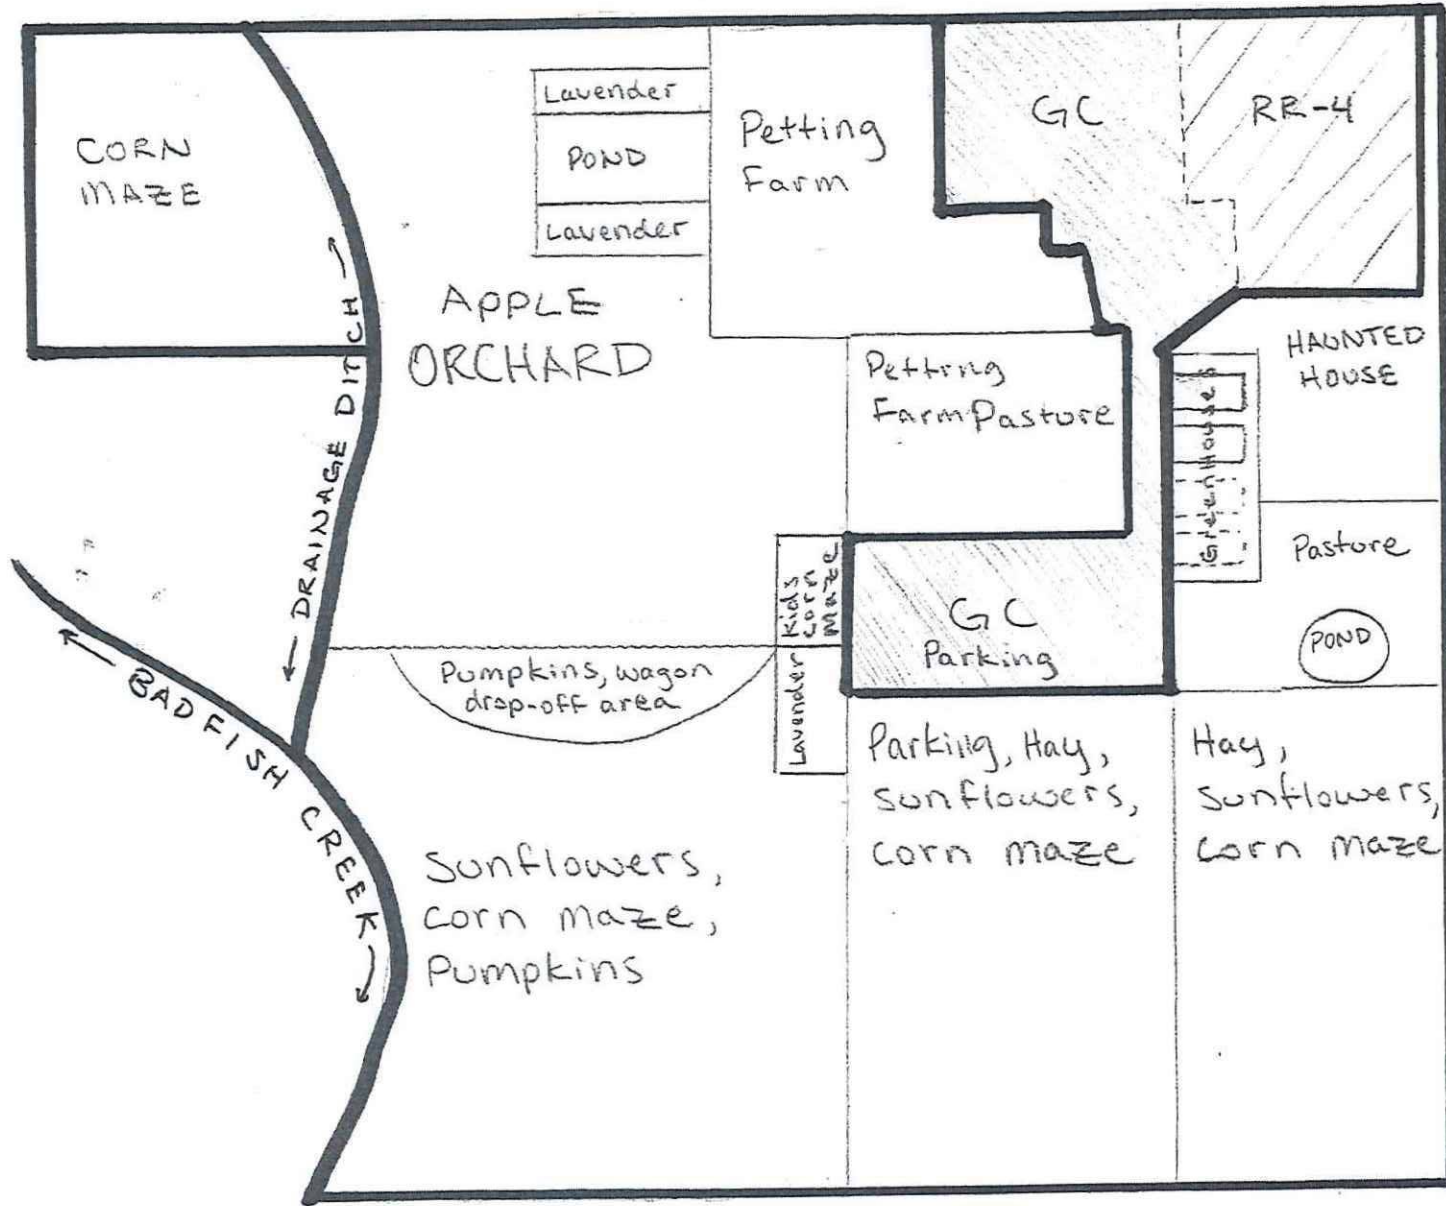 CORN
MAZE
Lavender
POND
Lavender
Petting
Farm
GC
RR-4
APPLE
ORCHARD
DRAINAGE DITCH
Petting
Farm Pasture
HAUNTED
HOUSE
Greenhouses
Pasture
POND
Kids
Corn
Maze
GC
Parking
Lavender
Pumpkins, wagon
drop-off area
BADFISH CREEK
Parking, Hay,
sunflowers,
corn maze
Hay,
Sunflowers,
corn maze
Sunflowers,
corn maze,
Pumpkins